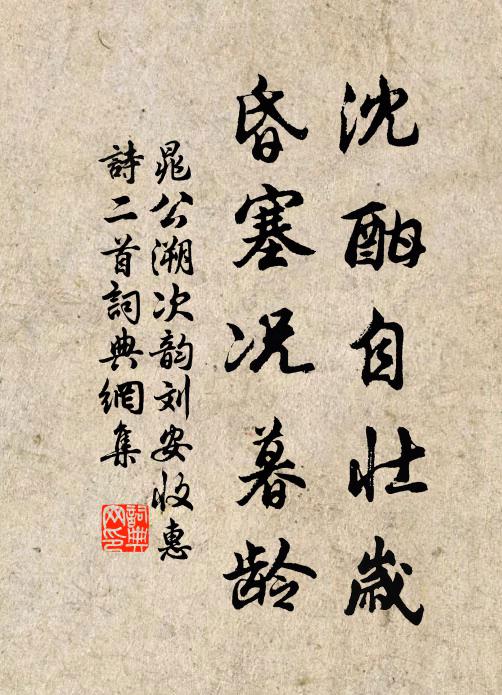 沈酣自壮岁
昏塞况暮龄
晁公溯次韵刘安收惠
詩二首詞典網集
詞典
网印